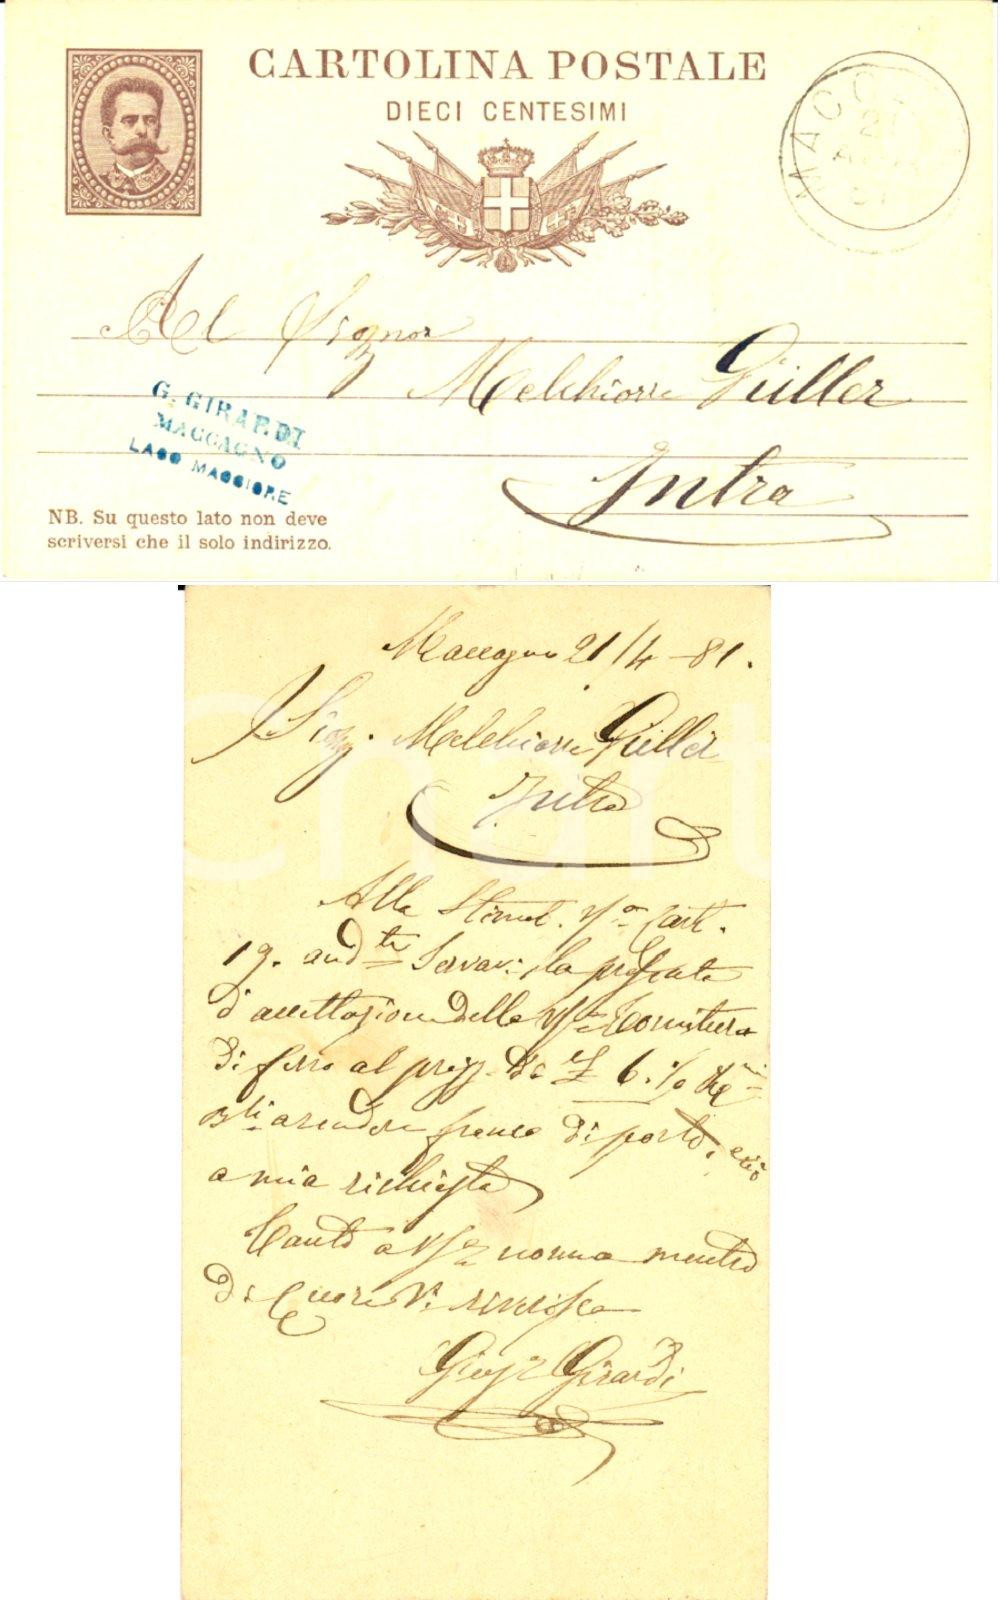 CARTOLINA POSTALE
DIECI CENTESIMI
Al Signor
Melchiorre Güller
Intra
G. GIRARDI
MACCAGNO
LAGO MAGGIORE
NB. Su questo lato non deve
scriversi che il solo indirizzo.
Maccagno 21/4 - 81.
Sig. Melchiorre Güller
Intra
Alla Stimat. Cart.
19. and.te la presente
d'accettazione della fornitura
di ferro al prezz. di £ 6.
franco di porto, e ciò
a mia richiesta
Tanto a norma mentre
di Cuore Vi riverisco
Gius. Girardi